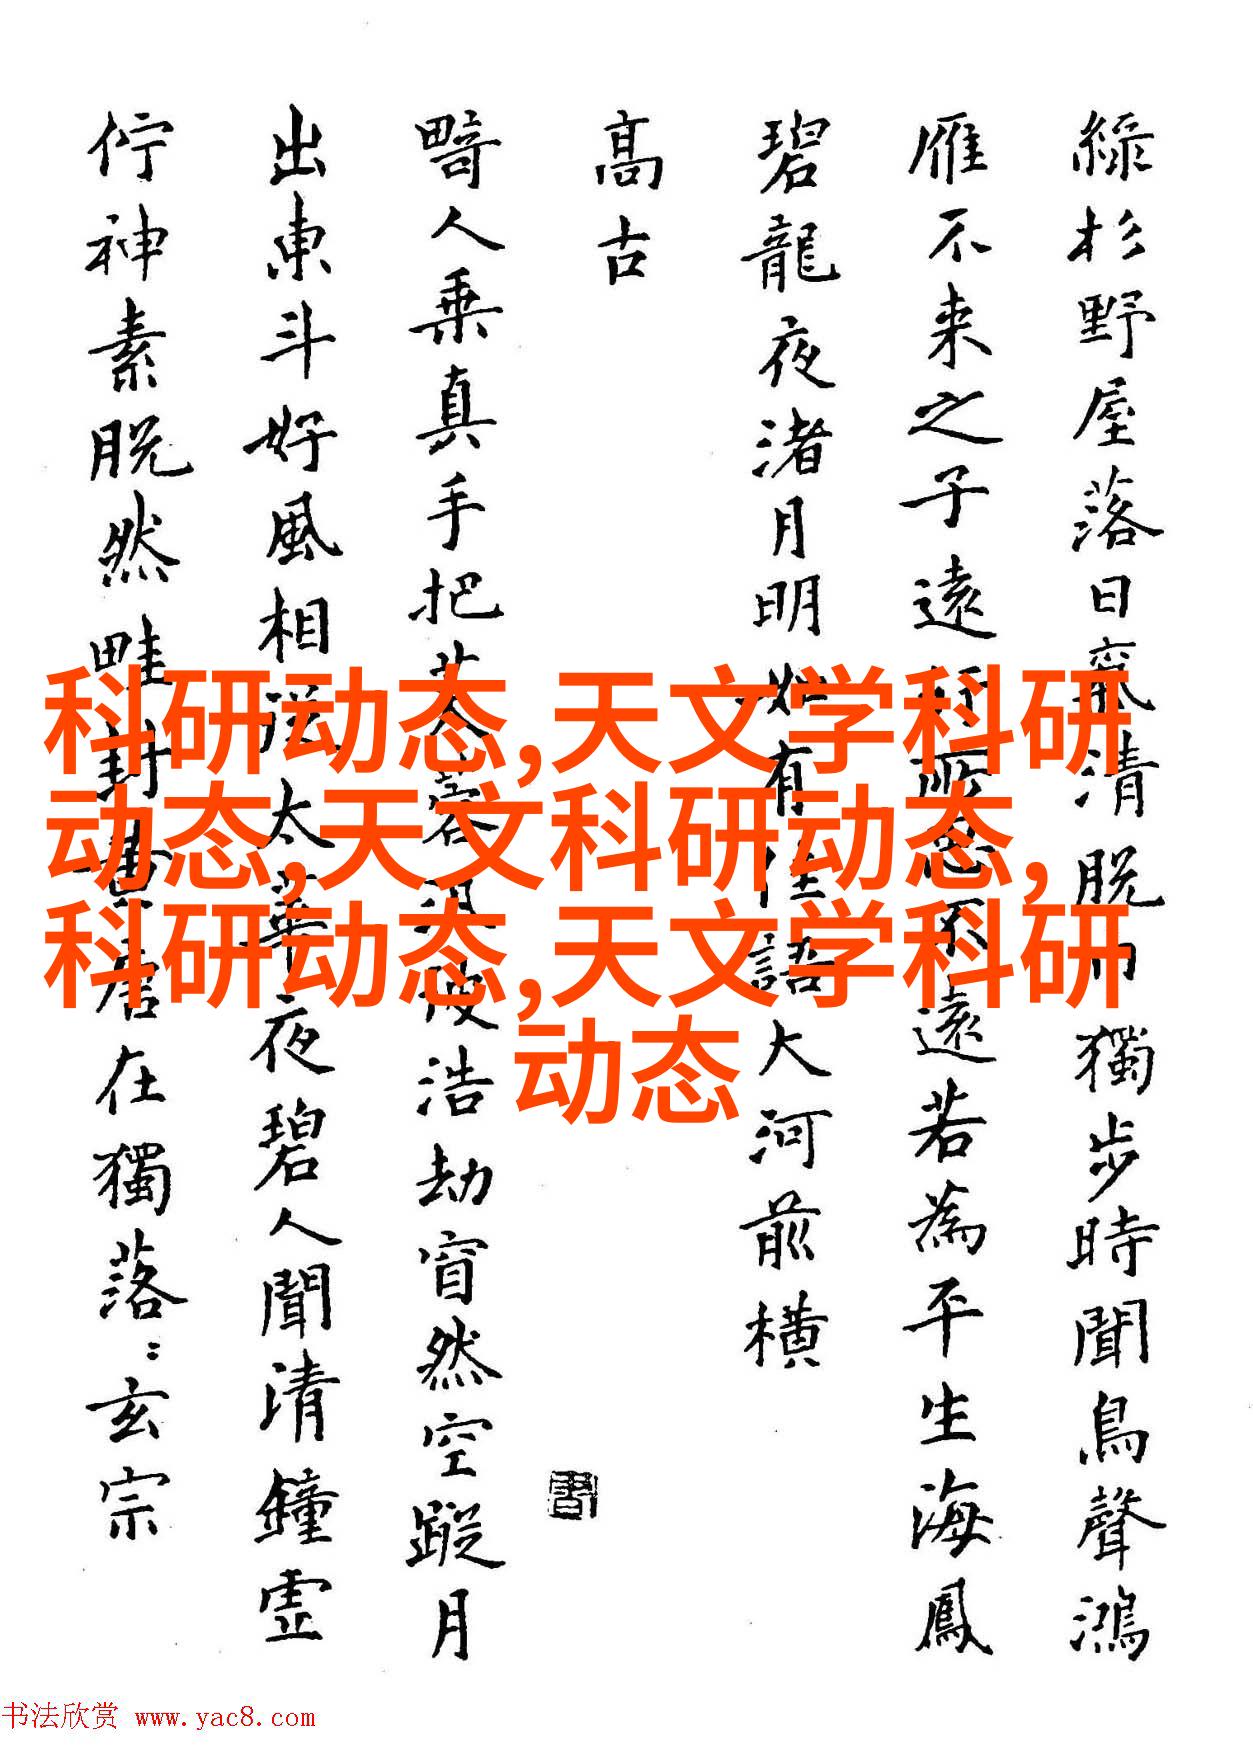 綠杉野屋落日氣清脱巾獨步時聞鳥聲鴻
雁不来之子遠行所思不遠若為平生海鳳
碧龍夜渚月明如有佳語大河前橫
高古
畸人乗真手把芙蓉汎彼浩劫窅然空蹤月
出東斗好風相從太華夜碧人聞清鐘虚
佇神素脱然畦封黄唐在獨落：玄宗
書
科研动态,天文学科研
动态,天文科研动态,
科研动态,天文学科研
动态
书法欣赏 www.yac8.com